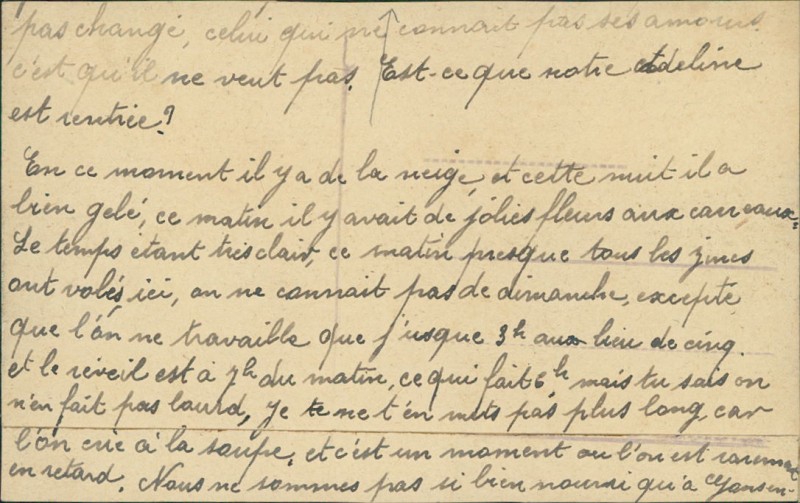 pas changé, celui qui ne connait pas ses amours
c'est qu'il ne veut pas. Est-ce que notre Adeline
est rentrée?
En ce moment il y a de la neige, et cette nuit il a
bien gelé, ce matin il y avait de jolies fleurs aux carreaux.
Le temps étant très clair, ce matin presque tous les
ont volés ici, on ne connait pas de dimanche, excepté
que l'on ne travaille que j'usque 3h aux lieu de cinq.
et le réveil est à 7h du matin, ce qui fait 6h, mais tu sais on
n'en fait pas lourd, je te ne t'en mets pas plus long, car
l'on crie à la soupe, et c'est un moment ou l'on est rarement
en retard. Nous ne sommes pas si bien nourri qu'a